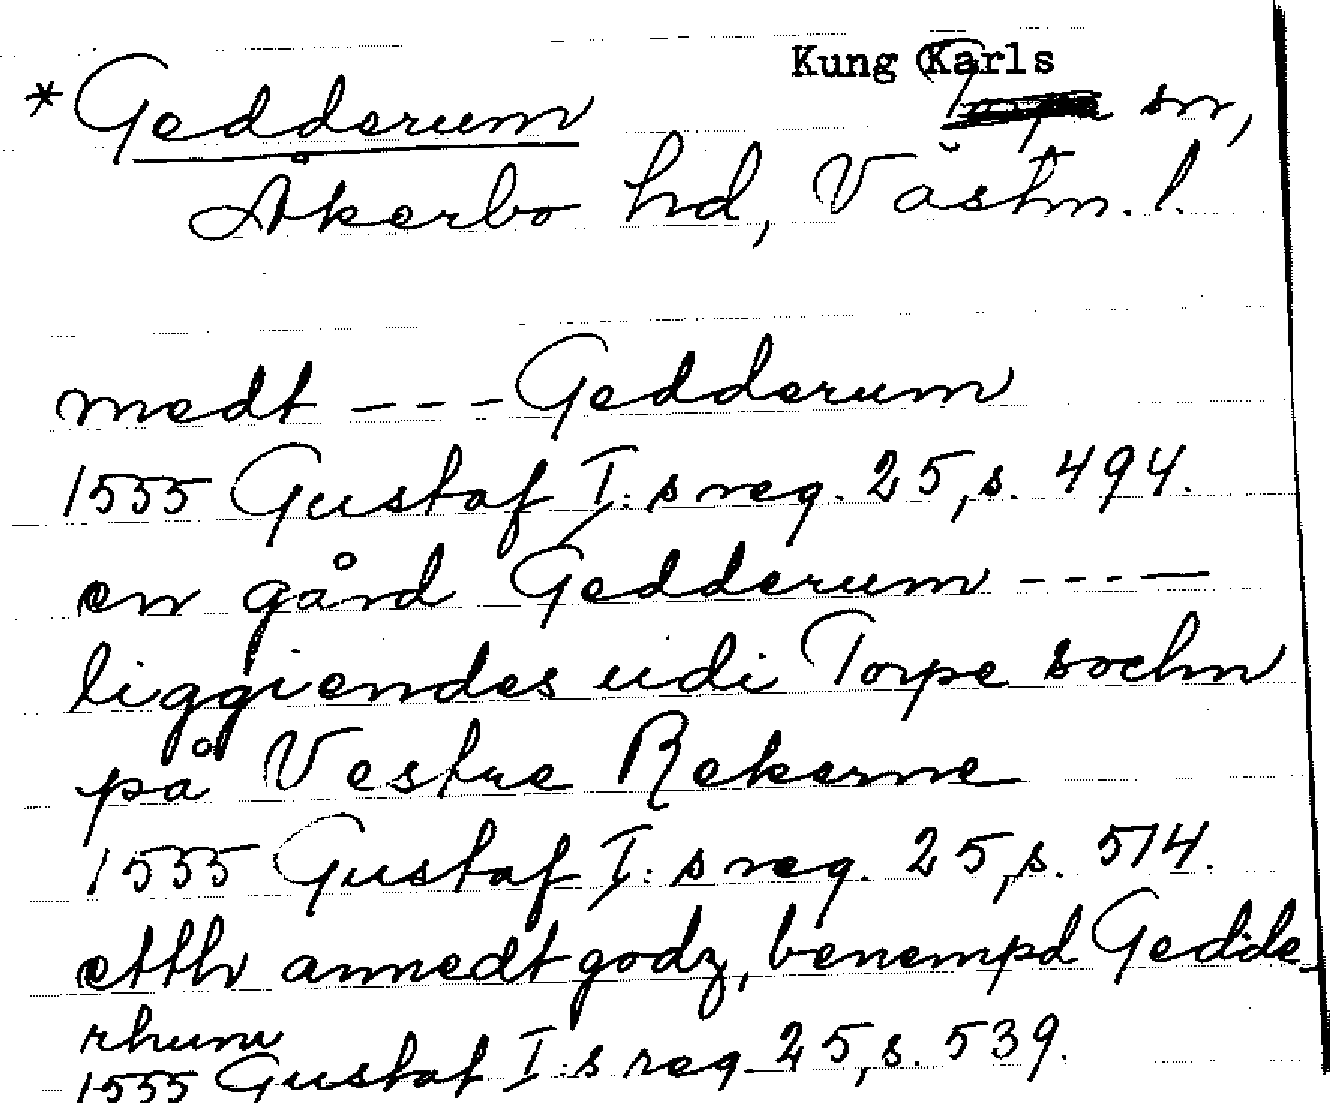 Kung Karls
*Gedderum sn,
Åkerbo hd, Västm. l.
medt --- Gedderum
1555 Gustaf I:s reg. 25, s. 494.
en gård Gedderum ----
liggiendes udi Torpe sochn
på Vestre Rekerne
1555 Gustaf I:s reg. 25, s. 514.
etth annedt godz, benempd Gedde-
rhum
1555 Gustaf I:s reg. 25, s. 539.